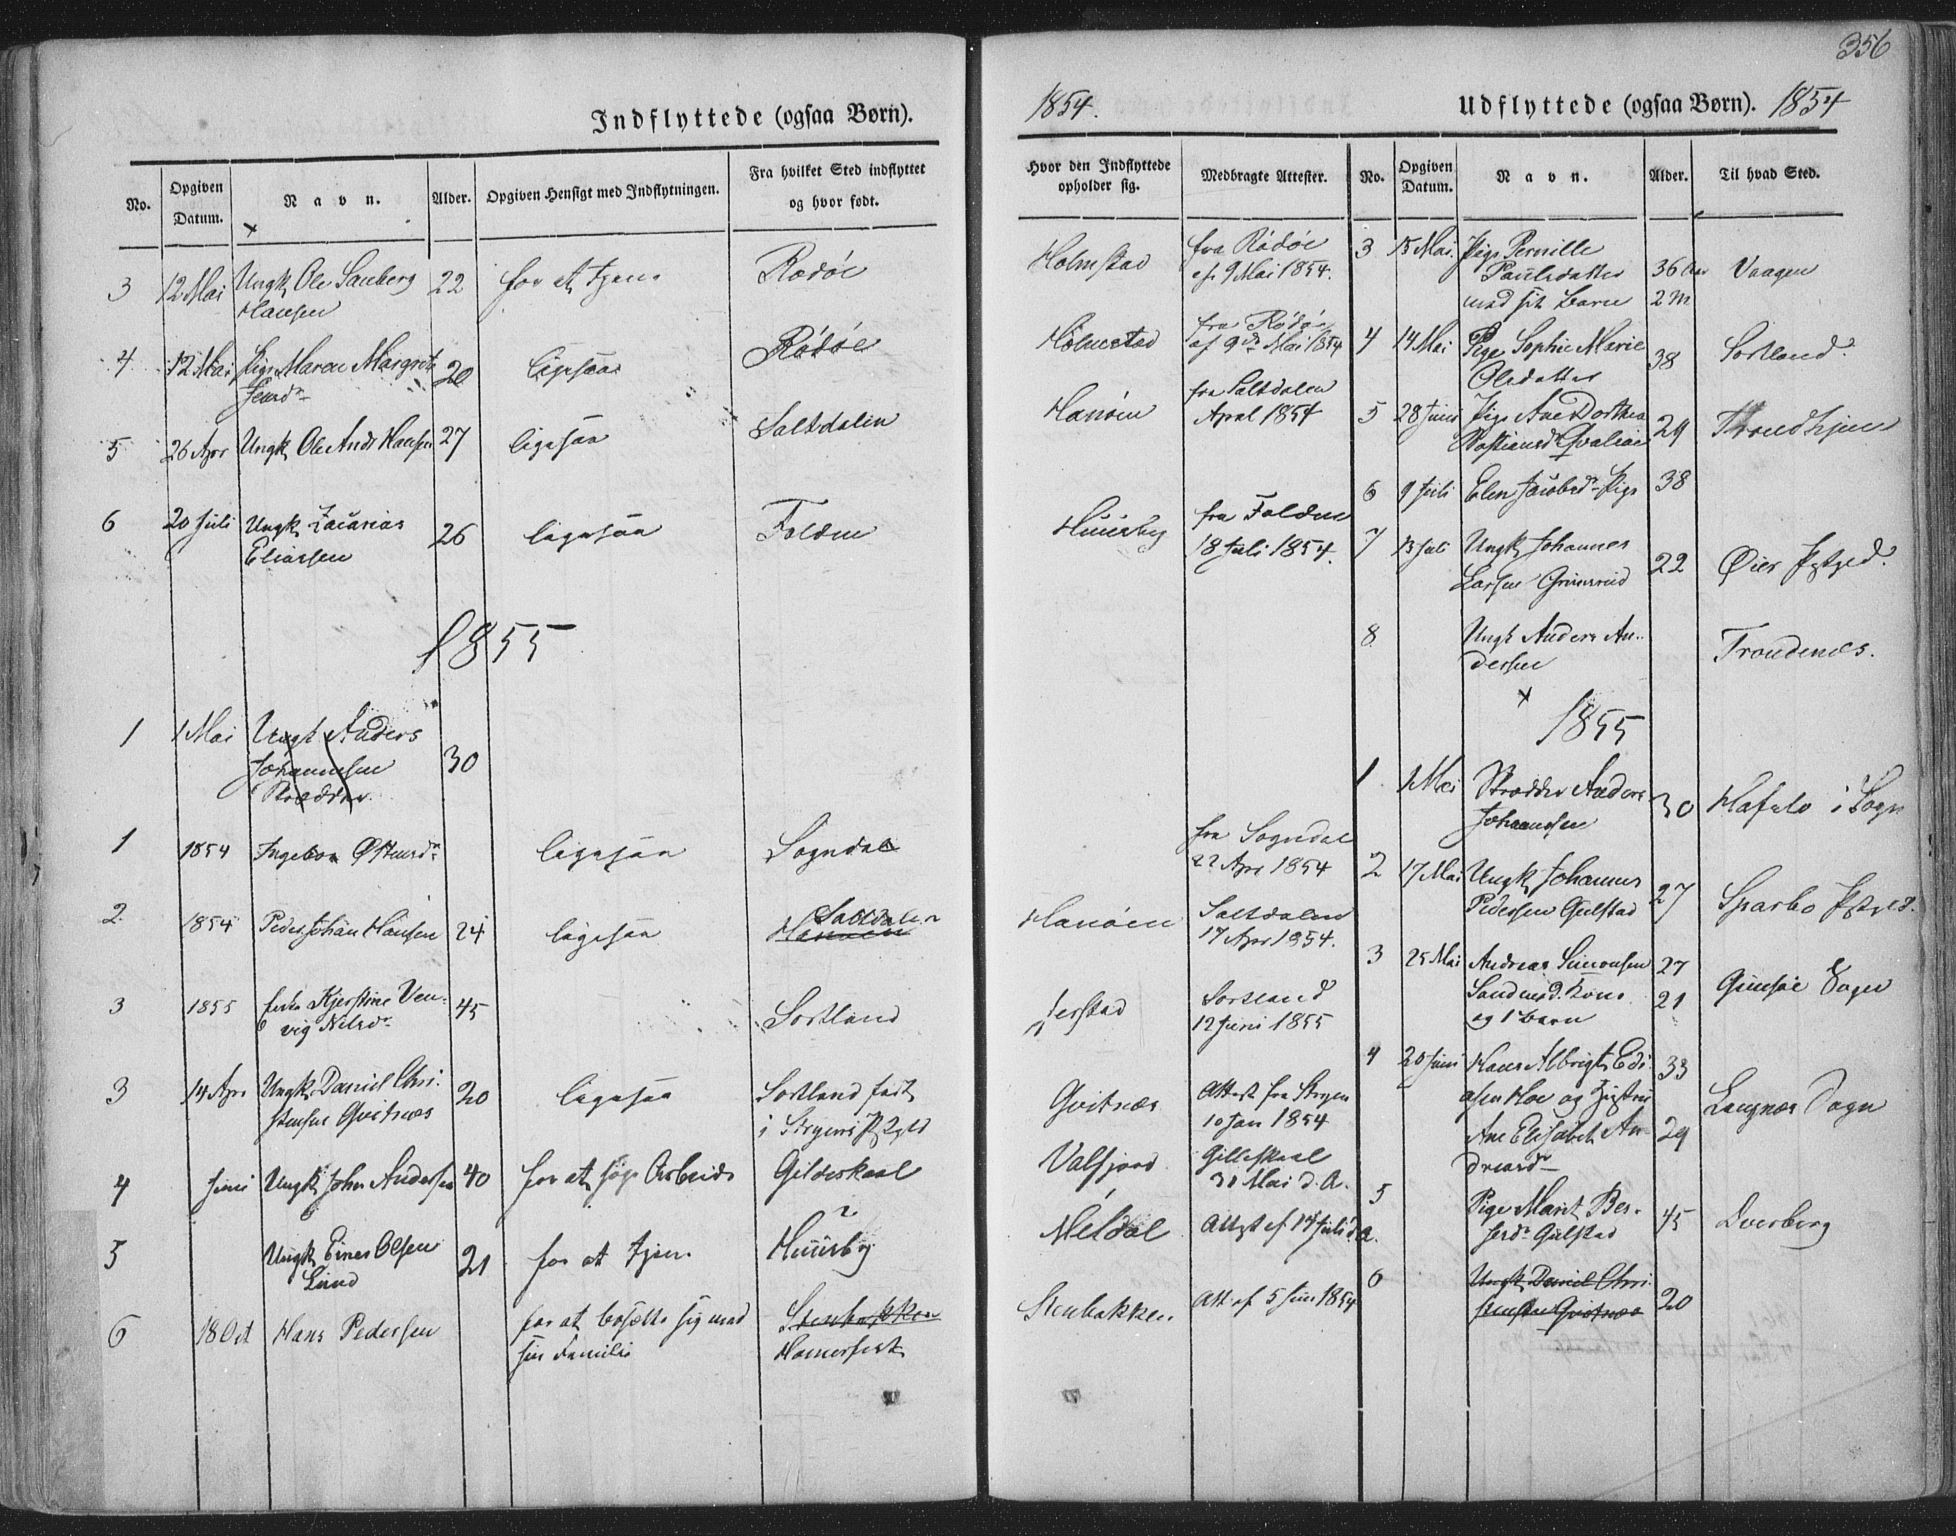 356
Indflyttede (ogsaa Børn).
No.
Opgiven Datum.
Navn.
Alder.
Opgiven Hensigt med Indflytningen.
Fra hvilket Sted indflyttet
og hvor født.
3 12 Mai Ungk Ole Hansen 22 for at tjene Rødøe
4 12 Mai Pige Maren Margrete 20 ligesaa Rødøe
5 26 Apr Ungk Ole Ands Hansen 27 ligesaa Saltdalen
6 20 Juli Ungk Zacarias 26 ligesaa Folden
Eliassen
1855
1 1 Mai Ungk Anders 30
Johannesen
Skrædder
1 1854 Ingebor ligesaa Sogndal
2 1854 Peder Johan Hansen 24 ligesaa Saltdalen
Hanøen
3 1855 Kjerstine 45 Sortland
3 14 Apr Ungk Daniel Chri- 20 ligesaa Sortland født
stensen Gvitnæs i
4 Juni Ungk John Andersen 40 for at søge Arbeide Gildeskaal
5 Ungk Olsen 21 for at tjene
Lund
6 18 Oct Hans Pedersen for at bosætte sig med Stenbakken
sin Familie Hamerfest
1854.
Udflyttede (ogsaa Børn). 1854
Hvor den Indflyttede
opholder sig.
Medbragte Attester.
No.
Opgiven Datum.
Navn.
Alder.
Til hvad Sted.
Holmstad fra Rødøe
af 9 Mai 1854.
Holmstad fra Rødøe
af 9de Mai 1854
Hanøen fra Saltdalen
April 1854
fra Folden
18 Juli 1854.
fra Sogndal
22 Apr 1854
Hanøen Saltdalen
17 Apr 1854.
Jerstad Sortland
12 Juni 1855
Gvitnæs Attest fra
10 Jan 1854
Valfjord Gilleskaal
31 Mai d. A.
Meldal Attest af 14 Juli d. A.
Stenbakken Att af 5 Juni 1854
3 15 Mai Pige Pernille
Paulsdatter 36 Aar Vaagen
med sit Barn 2 M
4 14 Mai Pige Sophie Marie 38 Sortland
Olsdatter
5 28 Juni Pige Ane Dorthea 29 Trondhjem
6 9 Juli Elen Jacobsd Pige 38
7 13 Juli Ungk Johannes
Larsen 22 Øier Pstgjd.
8 Ungk Anders An-
dersen Trondenæs.
1855
1 1 Mai Skrædder Anders 30 Hafslo i Sogn
Johannesen
2 17 Mai Ungk Johannes 27 Sparbo Pstgjd.
Pedersen Gulstad
3 25 Mai Andreas Simonsen 27
Kone 21 Gimsøe Sogn
og 1 Barn
4 20 Juni Hans Albrigt 33
og Hustru Langnæs Sogn
Ane Elisabeth An- 29
5 Pige Marit 45 Dverberg
Gulstad
6 Ungk Daniel Chri- 20
stensen Gvitnæs